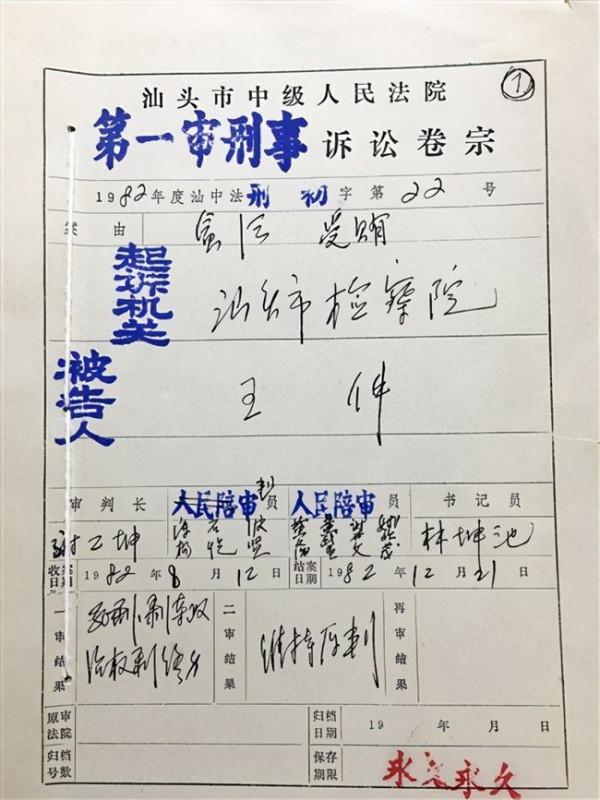 1
汕头市中级人民法院
第一审刑事诉讼卷宗
1982年度汕中法刑初字第22号
案由 贪污 受贿
起诉机关 汕头市检察院
被告人 王仲
审判长 人民陪审员 人民陪审员 书记员
林坤池
收案日期 1982年8月12日 结案日期 1982年12月21日
一审结果 死刑 剥夺政治权利终身 二审结果 维持原判 再审结果
原审法院 归档日期 19 年 月 日
归档号数 保存期限 永久